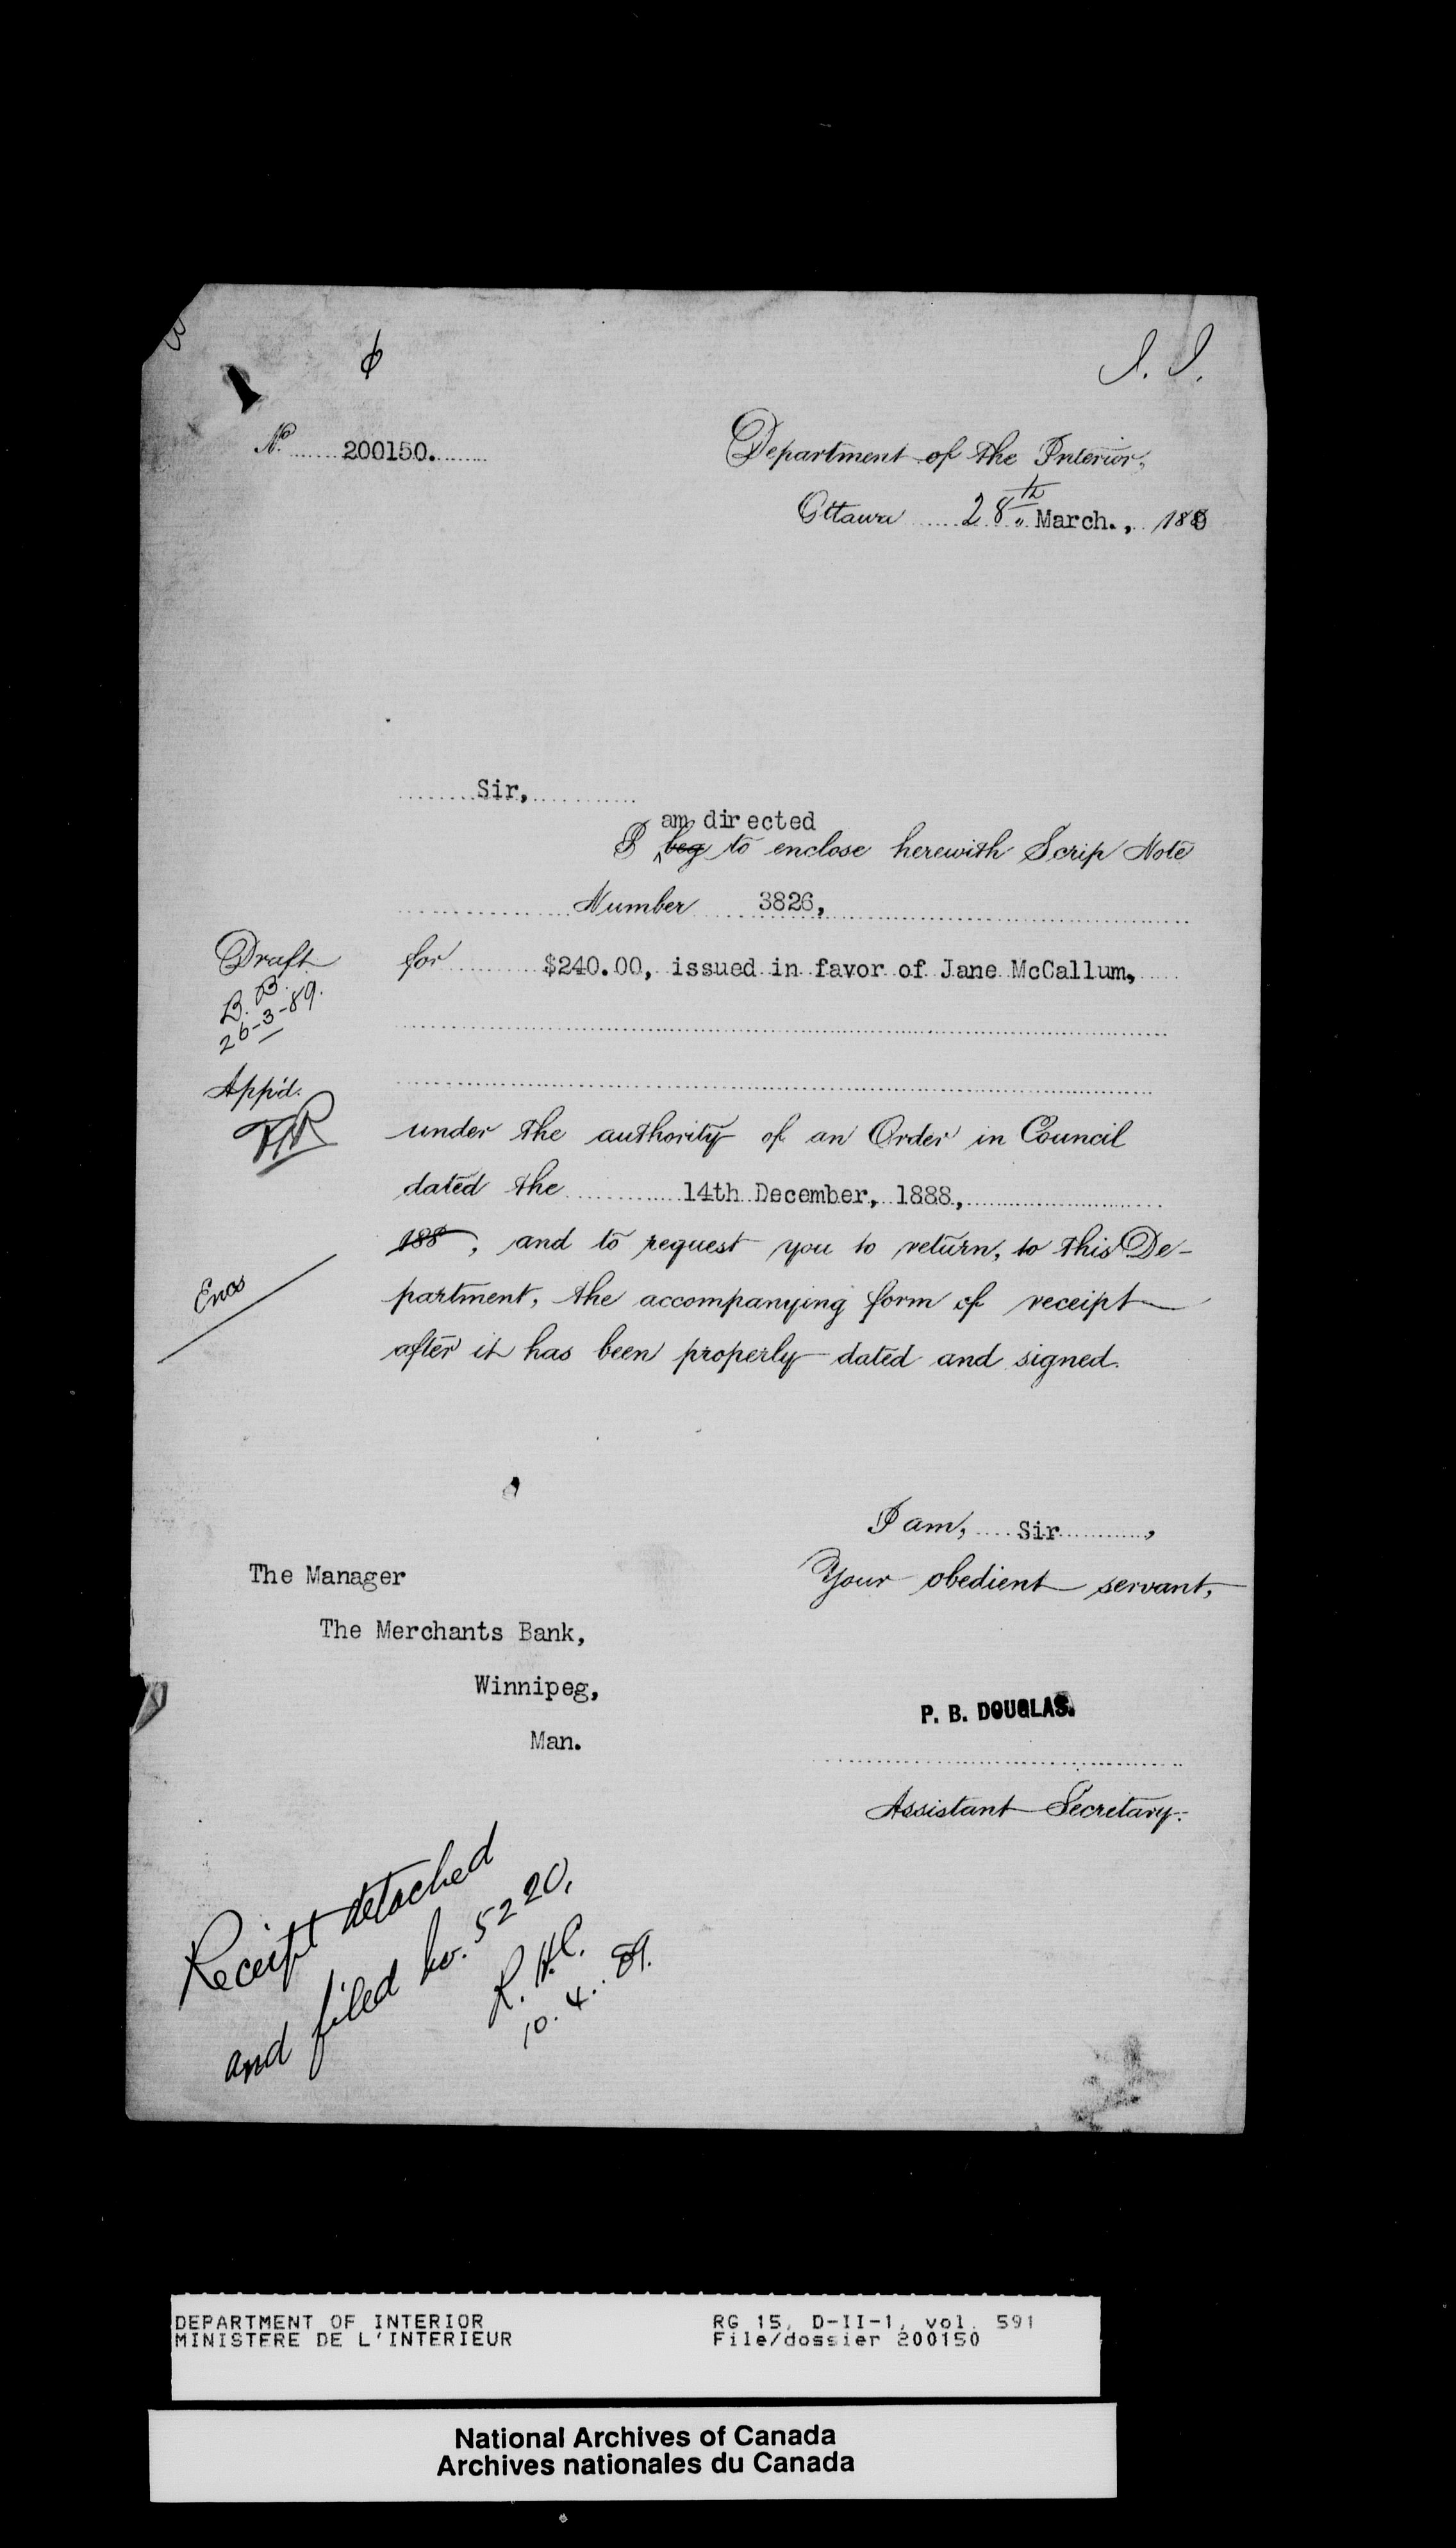 I. I.
No 200150.
Department of the Interior,
Ottawa 28th March., 188
Sir,
am directed
I beg to enclose herewith Scrip Note
Number 3826,
for $240.00, issued in favor of Jane McCallum,
Draft
B. B.
26-3-89.
App'd.
under the authority of an Order in Council
dated the 14th December, 1888,
188 , and to request you to return, to this De-
partment, the accompanying form of receipt
after it has been properly dated and signed.
Encs
I am, Sir ,
Your obedient servant,
The Manager
The Merchants Bank,
Winnipeg,
Man.
P. B. DOUGLAS.
Assistant Secretary.
Receipt detached
and filed no. 5220.
R. H. C.
10. 4. 89.
DEPARTMENT OF INTERIOR
MINISTERE DE L'INTERIEUR
RG 15, D-II-1, vol. 591
File/dossier 200150
National Archives of Canada
Archives nationales du Canada